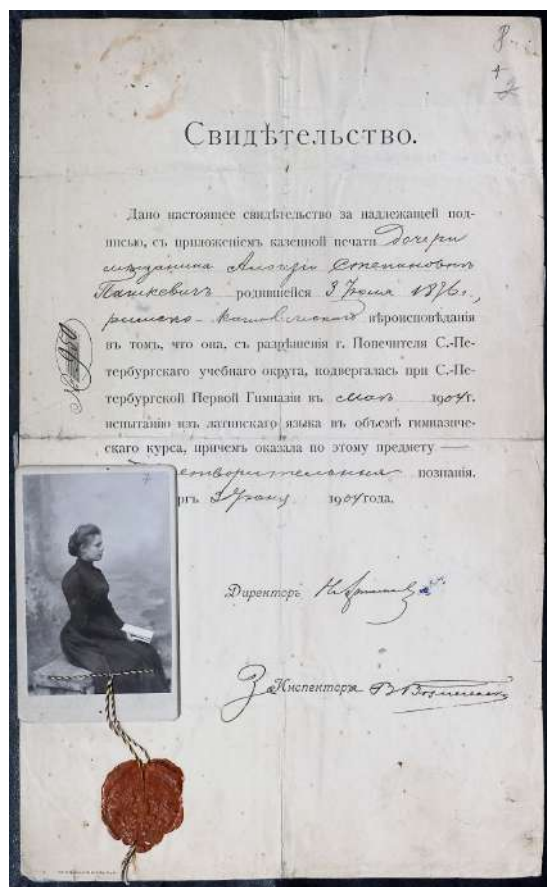 Свидѣтельство.
Дано настоящее свидѣтельство за надлежащей под-
писью, съ приложеніемъ казенной печати дочери
мѣщанина Алоизіи Степановнѣ
Пашкевичъ родившейся 3 Іюля 1876 г.,
римско-католическаго вѣроисповѣданія
въ томъ, что она, съ разрѣшенія г. Попечителя С.-Пе-
тербургскаго учебнаго округа, подвергалась при С.-Пе-
тербургской Первой Гимназіи въ маѣ 1904 г.
испытанію изъ латинскаго языка въ объемѣ гимназиче-
скаго курса, причемъ оказала по этому предмету —
творительныя познанія.
ргъ 1904 года.
№ 950
Директоръ
За Инспектора